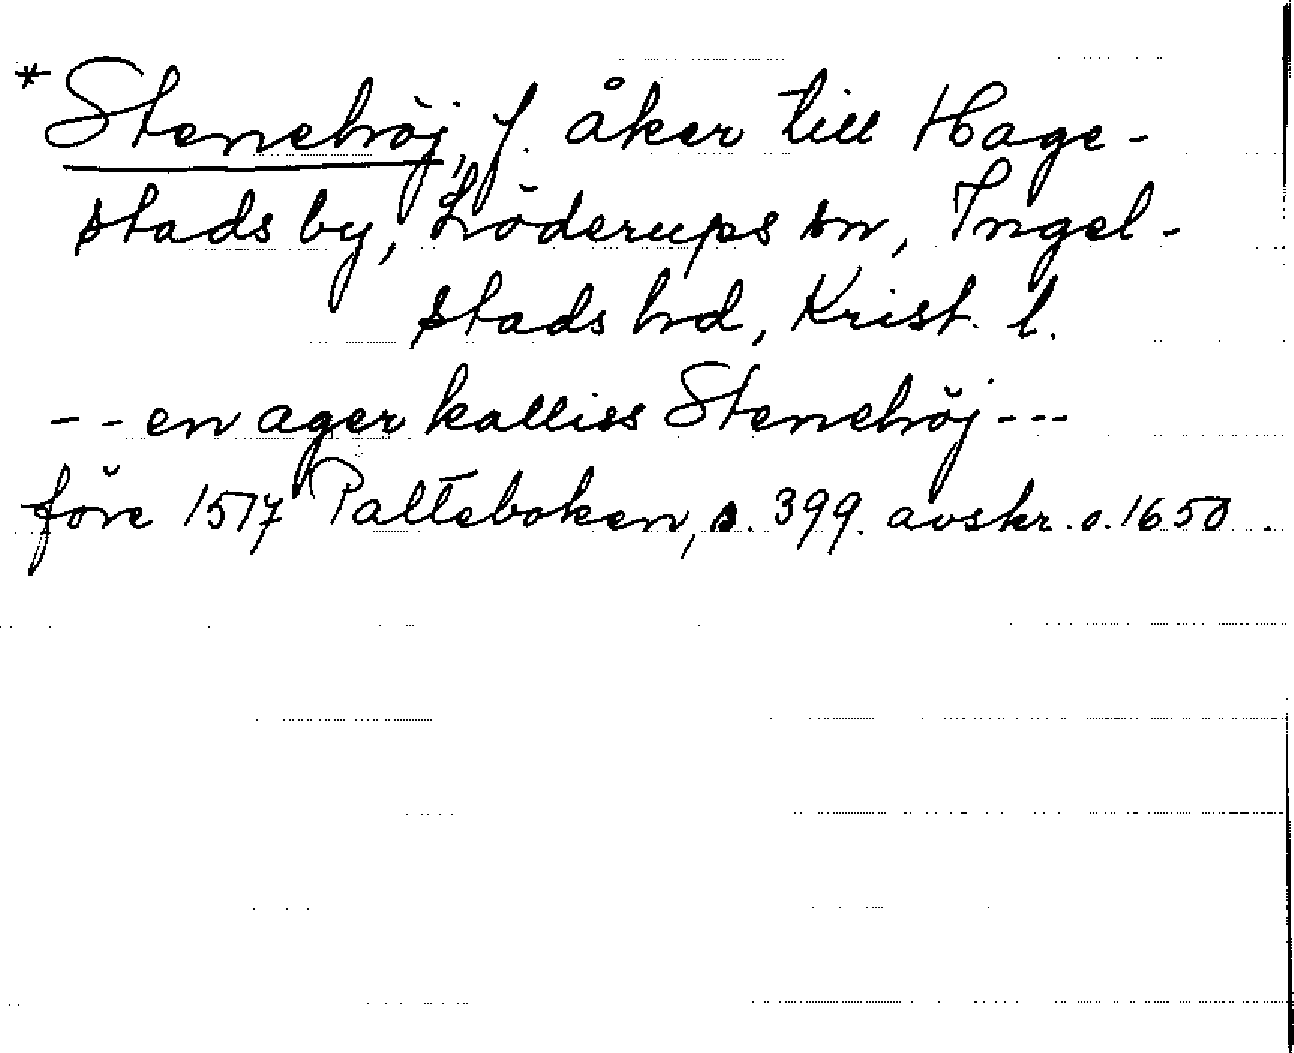 *Stenehöj, f. åker till Hage-
stads by, Löderups sn, Ingel-
stads hrd, Krist. l.
-- en ager kalliss Stenehöj ---
före 1517 Palteboken, s. 399. avskr. o. 1650.